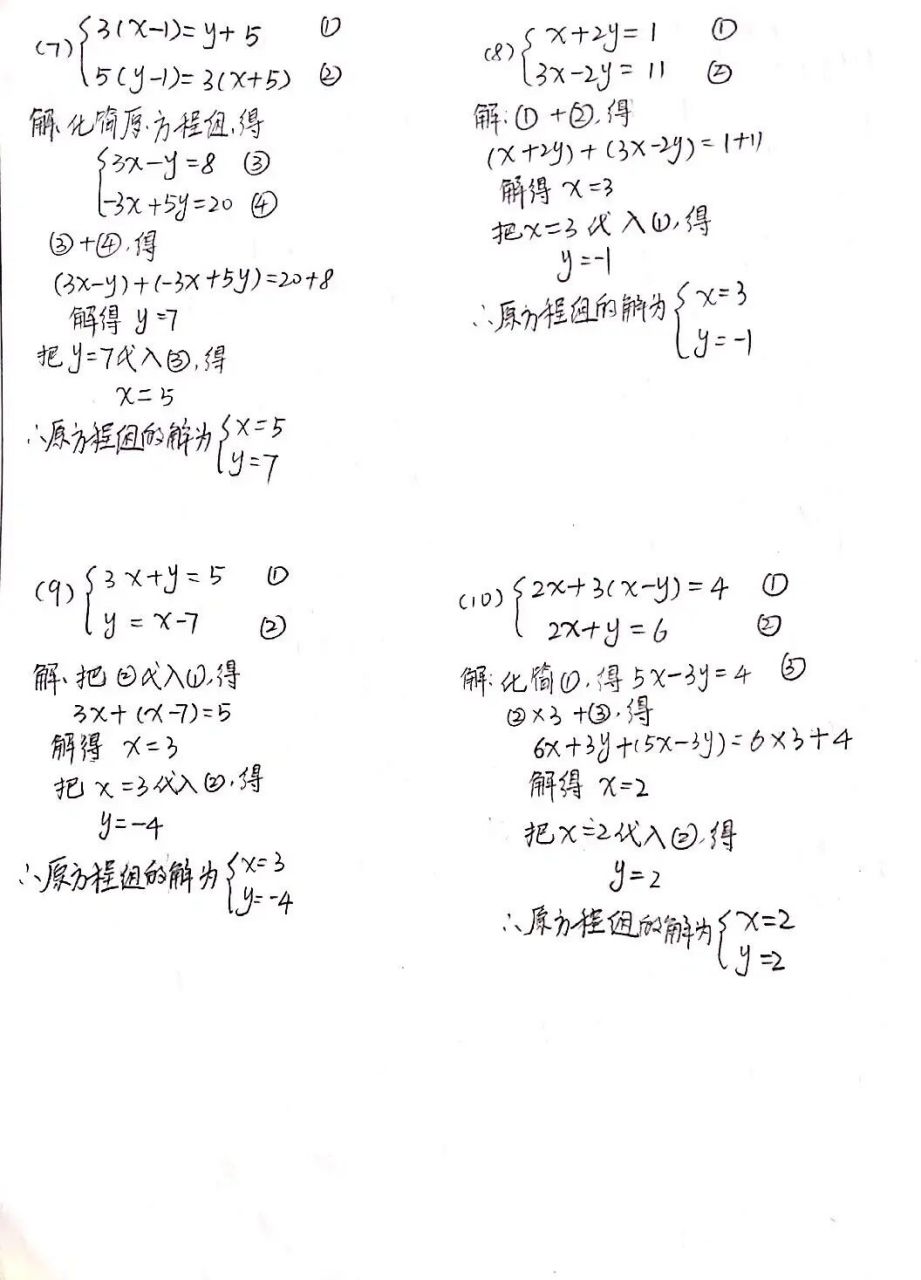 (7) {3(x-1)=y+5 ①
5(y-1)=3(x+5) ②
解:化简原方程组,得
{3x-y=8 ③
-3x+5y=20 ④
③+④,得
(3x-y)+(-3x+5y)=20+8
解得 y=7
把y=7代入③,得
x=5
∴原方程组的解为{x=5
y=7
(8) {x+2y=1 ①
3x-2y=11 ②
解:①+②,得
(x+2y)+(3x-2y)=1+11
解得 x=3
把x=3代入①,得
y=-1
∴原方程组的解为{x=3
y=-1
(9) {3x+y=5 ①
y=x-7 ②
解:把②代入①,得
3x+(x-7)=5
解得 x=3
把x=3代入②,得
y=-4
∴原方程组的解为{x=3
y=-4
(10) {2x+3(x-y)=4 ①
2x+y=6 ②
解:化简①,得5x-3y=4 ③
②×3+③,得
6x+3y+(5x-3y)=6×3+4
解得 x=2
把x=2代入②,得
y=2
∴原方程组的解为{x=2
y=2